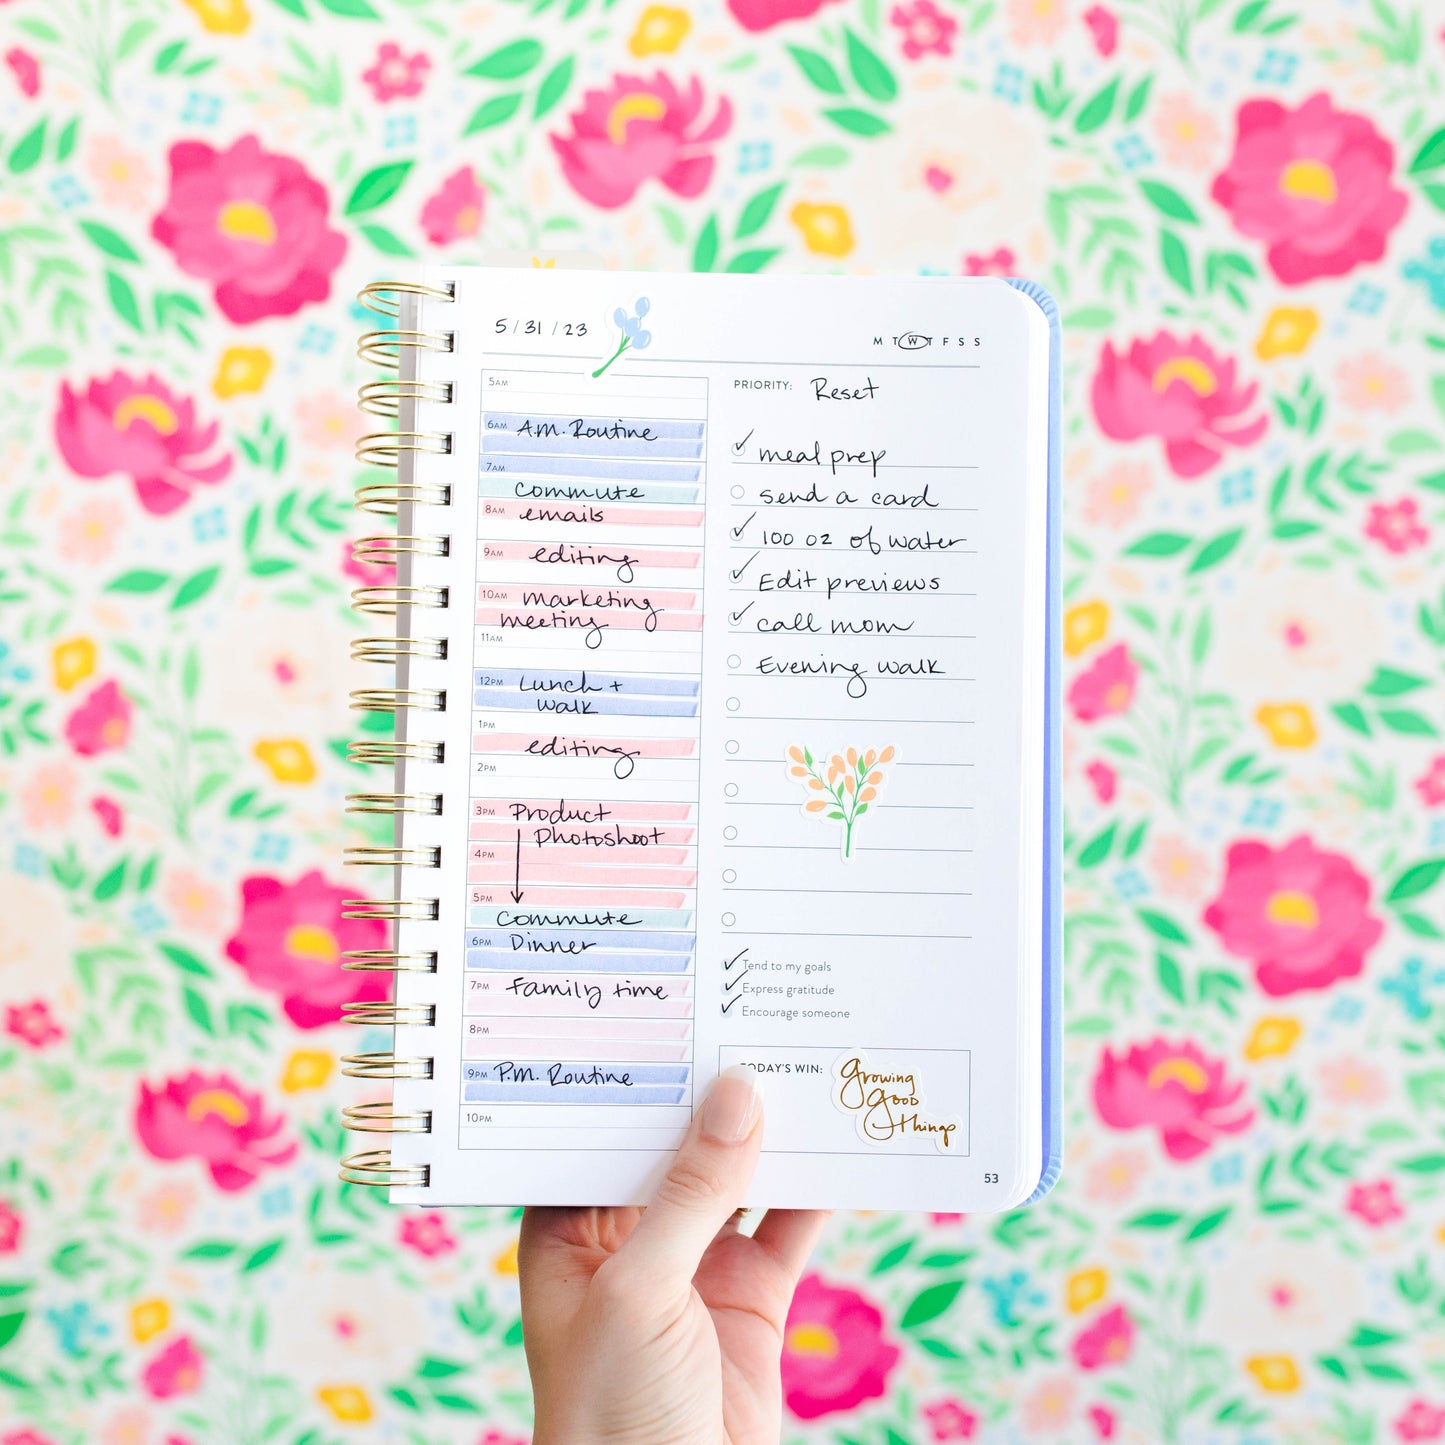 5 / 31 / 23
M T W T F S S
5AM
6AM A.M. Routine
7AM
commute
8AM emails
9AM editing
10AM marketing
meeting
11AM
12PM Lunch +
walk
1PM
editing
2PM
3PM Product
Photoshoot
4PM
5PM
Commute
6PM Dinner
7PM Family time
8PM
9PM P.M. Routine
10PM
PRIORITY: Reset
meal prep
send a card
100 oz of water
Edit previews
call mom
Evening walk
Tend to my goals
Express gratitude
Encourage someone
TODAY'S WIN:
growing
good
things
53